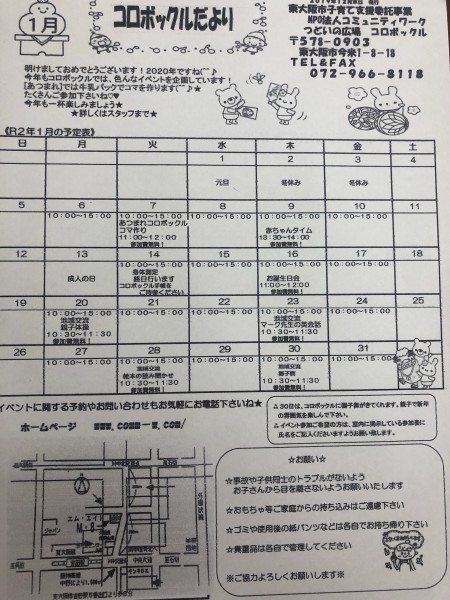 1月
コロポックルだより
東大阪市子育て支援委託事業
NPO法人コミュニティワーク
つどいの広場 コロポックル
〒578-0903
東大阪市今米1-8-18
TEL&FAX
072-966-8118
明けましておめでとうございます!2020年ですね(^^♪
今年もコロポックルでは、色んなイベントを企画しています!
【あつまれ】では牛乳パックでコマを作ります(^^♪★
たくさんご参加下さいね♡♥
今年も一杯楽しみましょう★
★詳しくはスタッフまで★
《R2年1月の予定表》
日 月 火 水 木 金 土
1 2 3 4
元旦 冬休み 冬休み
5 6 7 8 9 10 11
10:00~15:00 10:00~15:00 10:00~15:00 10:00~15:00 10:00~15:00
あつまれコロポックル
コマ作り
11:00~12:00
参加費無料!
赤ちゃんタイム
13:30~14:00
参加費無料!
12 13 14 15 16 17 18
成人の日
10:00~15:00 10:00~15:00 10:00~15:00 10:00~15:00
身体測定
終日行います
コロポックル手帳を
ご持参ください
お誕生日会
11:00~12:00
参加費無料!
19 20 21 22 23 24 25
10:00~15:00 10:00~15:00 10:00~15:00 10:00~15:00 10:00~15:00
地域交流
親子体操
10:30~11:30
参加費無料!
地域交流
マーク先生の英会話
10:30~11:30
参加費無料!
26 27 28 29 30 31
10:00~15:00 10:00~15:00 10:00~15:00 10:00~15:00 10:00~15:00
地域交流
絵本の読み聞かせ
10:30~11:30
参加費無料!
地域交流
獅子舞
10:30~11:30
参加費無料!
イベントに関する予約やお問い合わせもお気軽にお電話下さいね★
ホームページ www.comm-w.com/
∴30日は、コロポックルに獅子舞がきてくれます。親子で新年の雰囲気を楽しんで下さい。
∴イベント参加ご希望の方は、室内に掲示している参加表に氏名をご記入くださいますようお願い致します。
☆お願い☆
☆事故や子供同士のトラブルがないよう
お子さんから目を離さないようお願いいたします
☆おもちゃ等ご家庭からの持ち込みはご遠慮下さい
☆ゴミや使用後の紙パンツなどは各自でお持ち帰り下さい
☆貴重品は各自で管理してください
※ご協力よろしくお願いします※
エム・エイト
M-8